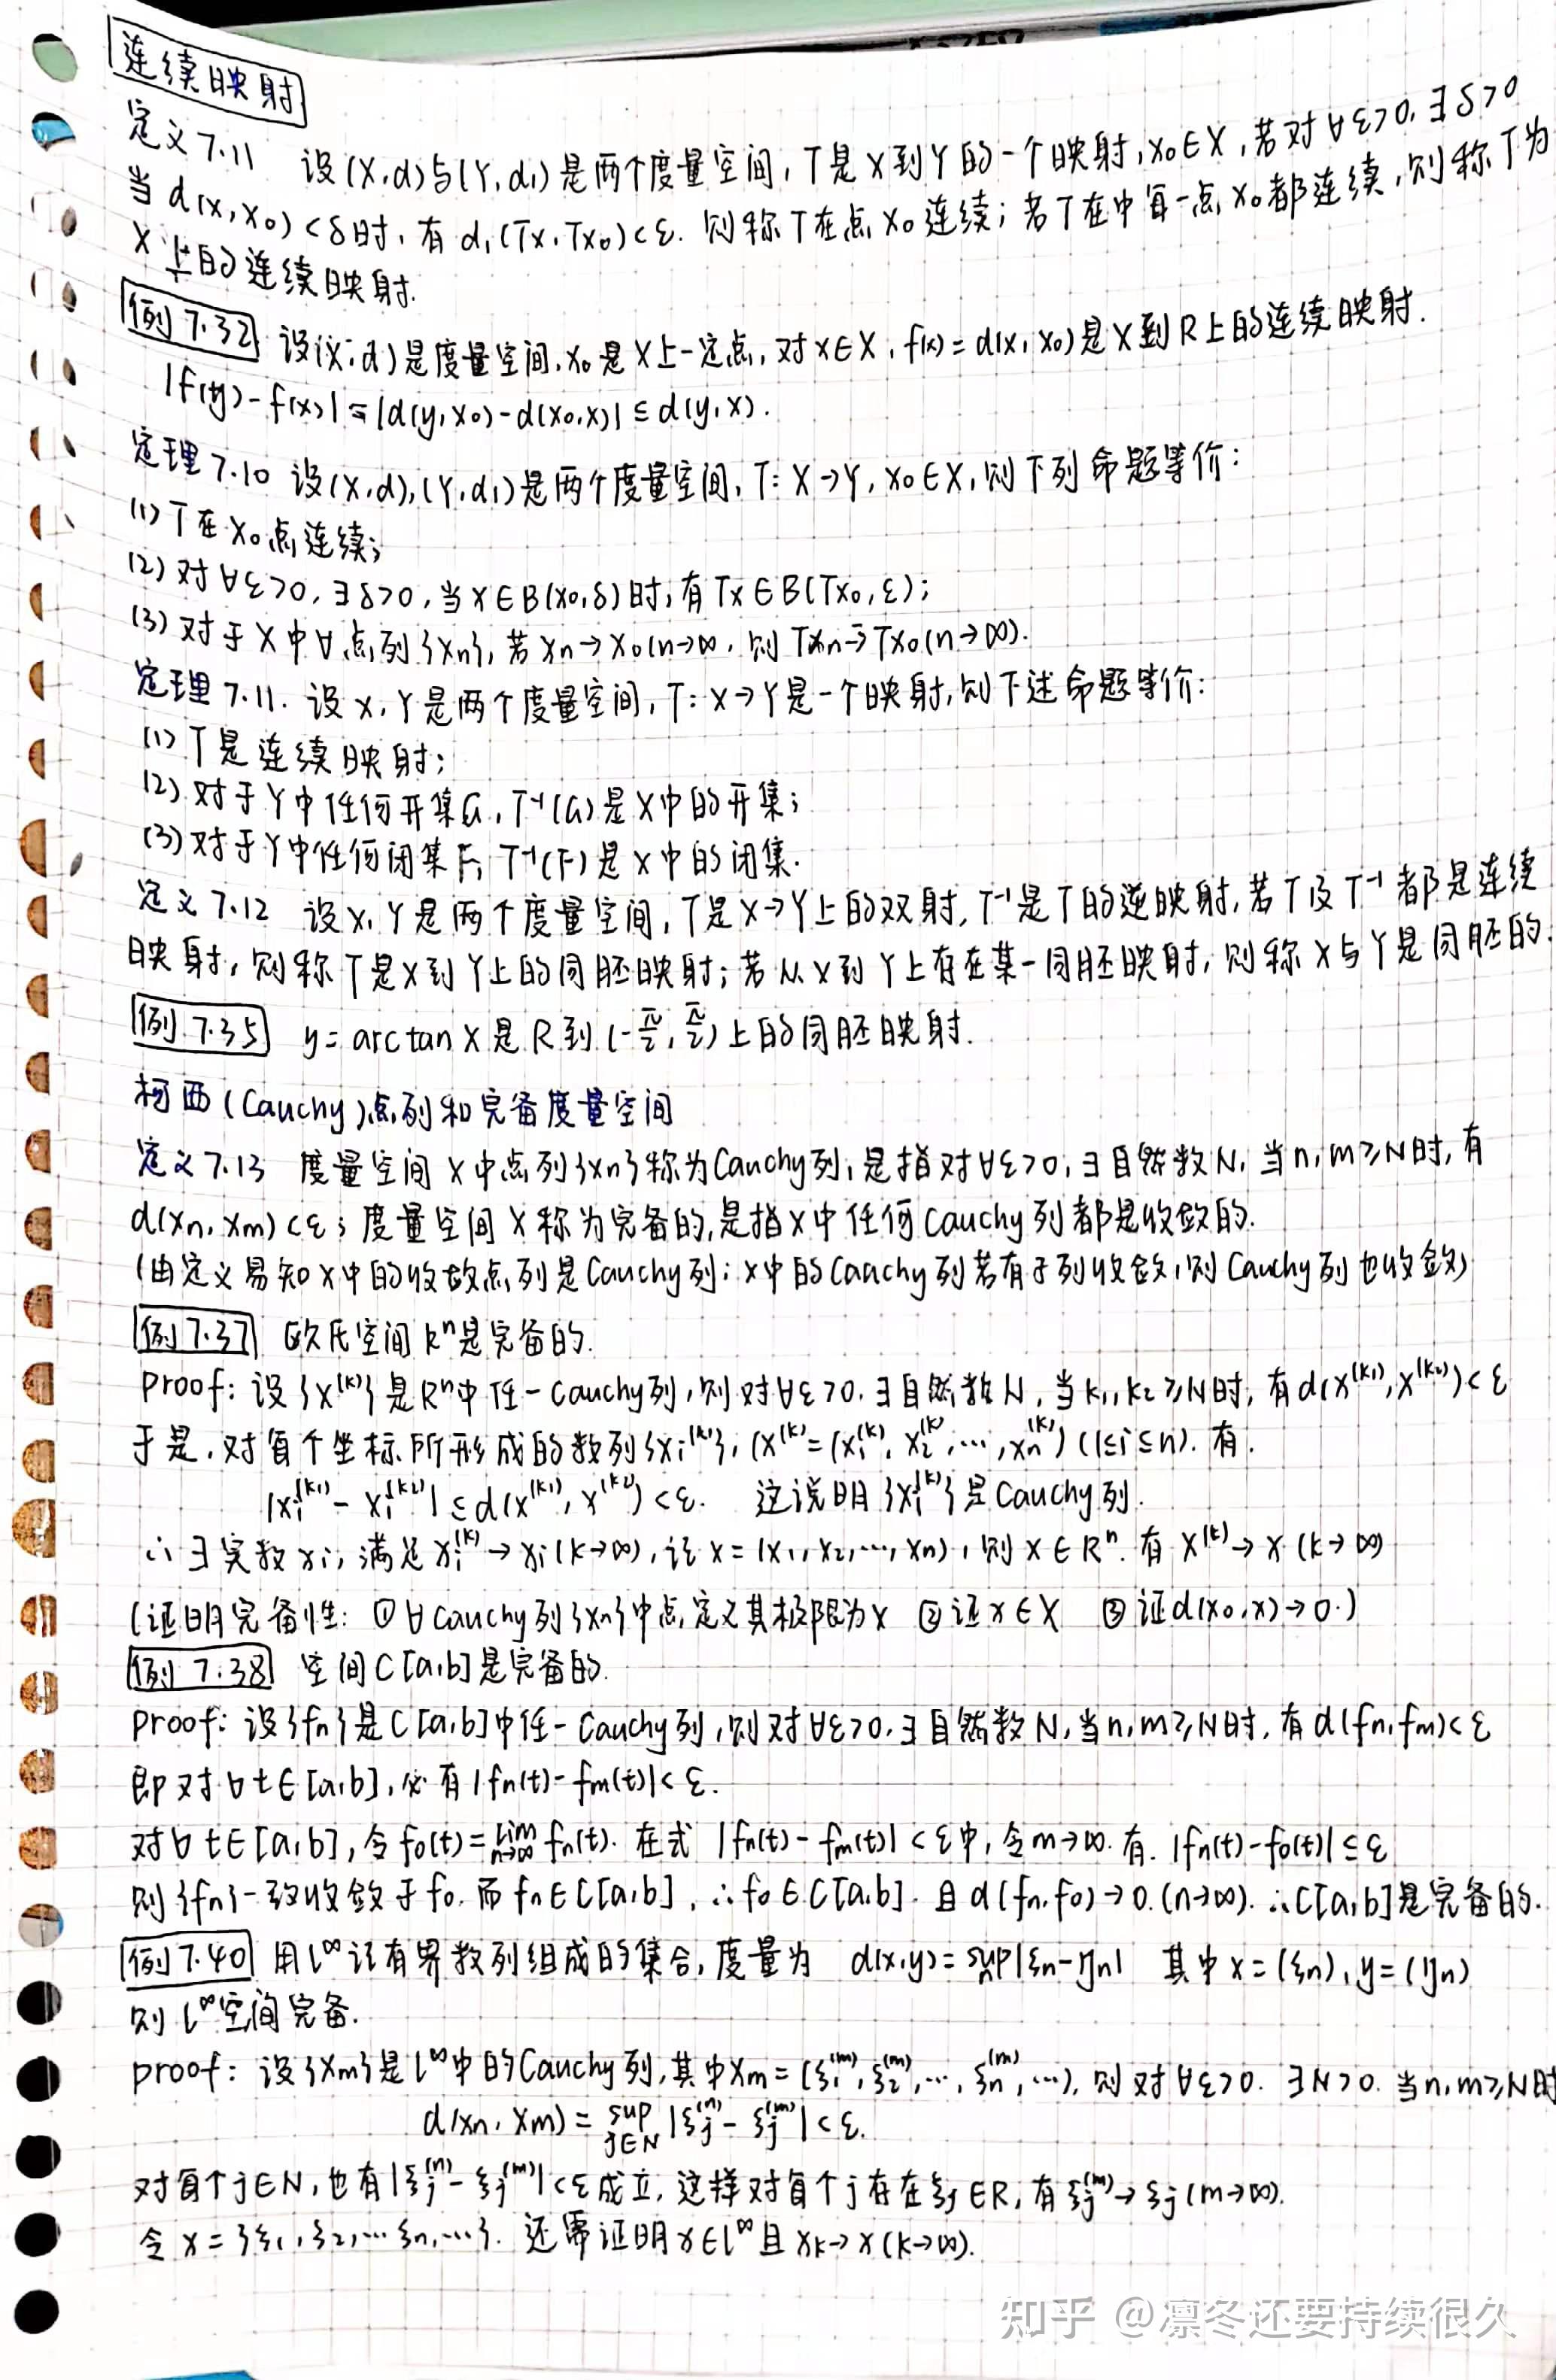 连续映射
定义7.11 设(X,d)与(Y,d₁)是两个度量空间,T是X到Y的一个映射,x₀∈X,若对∀ε>0,∃δ>0
当d(x,x₀)<δ时,有d₁(Tx,Tx₀)<ε. 则称T在点x₀连续;若T在中每一点x₀都连续,则称T为
X上的连续映射.
例7.32 设(X,d)是度量空间,x₀是X上一定点,对x∈X,f(x)=d(x,x₀)是X到R上的连续映射.
|f(y)-f(x)|=|d(y,x₀)-d(x₀,x)|≤d(y,x).
定理7.10 设(X,d),(Y,d₁)是两个度量空间,T:X→Y,x₀∈X,则下列命题等价:
(1)T在x₀点连续;
(2)对∀ε>0,∃δ>0,当x∈B(x₀,δ)时,有Tx∈B(Tx₀,ε);
(3)对于X中∀点列{xn},若xn→x₀(n→∞,则Txn→Tx₀(n→∞).
定理7.11. 设X,Y是两个度量空间,T:X→Y是一个映射,则下述命题等价:
(1)T是连续映射;
(2)对于Y中任何开集G,T⁻¹(G)是X中的开集;
(3)对于Y中任何闭集F,T⁻¹(F)是X中的闭集.
定义7.12 设X,Y是两个度量空间,T是X→Y上的双射,T⁻¹是T的逆映射,若T及T⁻¹都是连续
映射,则称T是X到Y上的同胚映射;若从X到Y上存在某一同胚映射,则称X与Y是同胚的.
例7.35 y=arctan x是R到(-π/2,π/2)上的同胚映射.
柯西(Cauchy)点列和完备度量空间
定义7.13 度量空间X中点列{xn}称为Cauchy列,是指对∀ε>0,∃自然数N,当n,m≥N时,有
d(xn,xm)<ε;度量空间X称为完备的,是指X中任何Cauchy列都是收敛的.
(由定义易知X中的收敛点列是Cauchy列;X中的Cauchy列若有子列收敛,则Cauchy列也收敛)
例7.37 欧氏空间Rⁿ是完备的.
proof:设{x^(k)}是Rⁿ中任一Cauchy列,则对∀ε>0,∃自然数N,当k₁,k₂≥N时,有d(x^(k₁),x^(k₂))<ε
于是,对每个坐标所形成的数列{xi^(k)},(x^(k)=(x₁^(k),x₂^(k),…,xn^(k))(1≤i≤n).有.
|xi^(k₁)-xi^(k₂)|≤d(x^(k₁),x^(k₂))<ε. 这说明{xi^(k)}是Cauchy列.
∴∃实数xi,满足xi^(k)→xi(k→∞),记x=(x₁,x₂,…,xn),则x∈Rⁿ.有x^(k)→x(k→∞)
(证明完备性:①∀Cauchy列{xn}中点,定义其极限为x ②证x∈X ③证d(x₀,x)→0.)
例7.38 空间C[a,b]是完备的.
proof:设{fn}是C[a,b]中任一Cauchy列,则对∀ε>0,∃自然数N,当n,m≥N时,有d(fn,fm)<ε
即对∀t∈[a,b],必有|fn(t)-fm(t)|<ε.
对∀t∈[a,b],令f₀(t)=lim n→∞ fn(t). 在式|fn(t)-fm(t)|<ε中,令m→∞.有.|fn(t)-f₀(t)|≤ε
则{fn}一致收敛于f₀.而fn∈C[a,b],∴f₀∈C[a,b].且d(fn,f₀)→0.(n→∞).∴C[a,b]是完备的.
例7.40 用l^∞记有界数列组成的集合,度量为 d(x,y)=sup n|ξn-ηn| 其中x=(ξn),y=(ηn)
则l^∞空间完备.
proof:设{xm}是l^∞中的Cauchy列,其中xm=(ξ₁^(m),ξ₂^(m),…,ξn^(m),…),则对∀ε>0.∃N>0.当n,m≥N时
d(xn,xm)=sup j∈N |ξj^(n)-ξj^(m)|<ε.
对每个j∈N,也有|ξj^(n)-ξj^(m)|<ε成立,这样对每个j存在ξj∈R,有ξj^(m)→ξj(m→∞).
令x={ξ₁,ξ₂,…ξn,…}. 还需证明x∈l^∞且xk→x(k→∞).
知乎 @凛冬还要持续很久